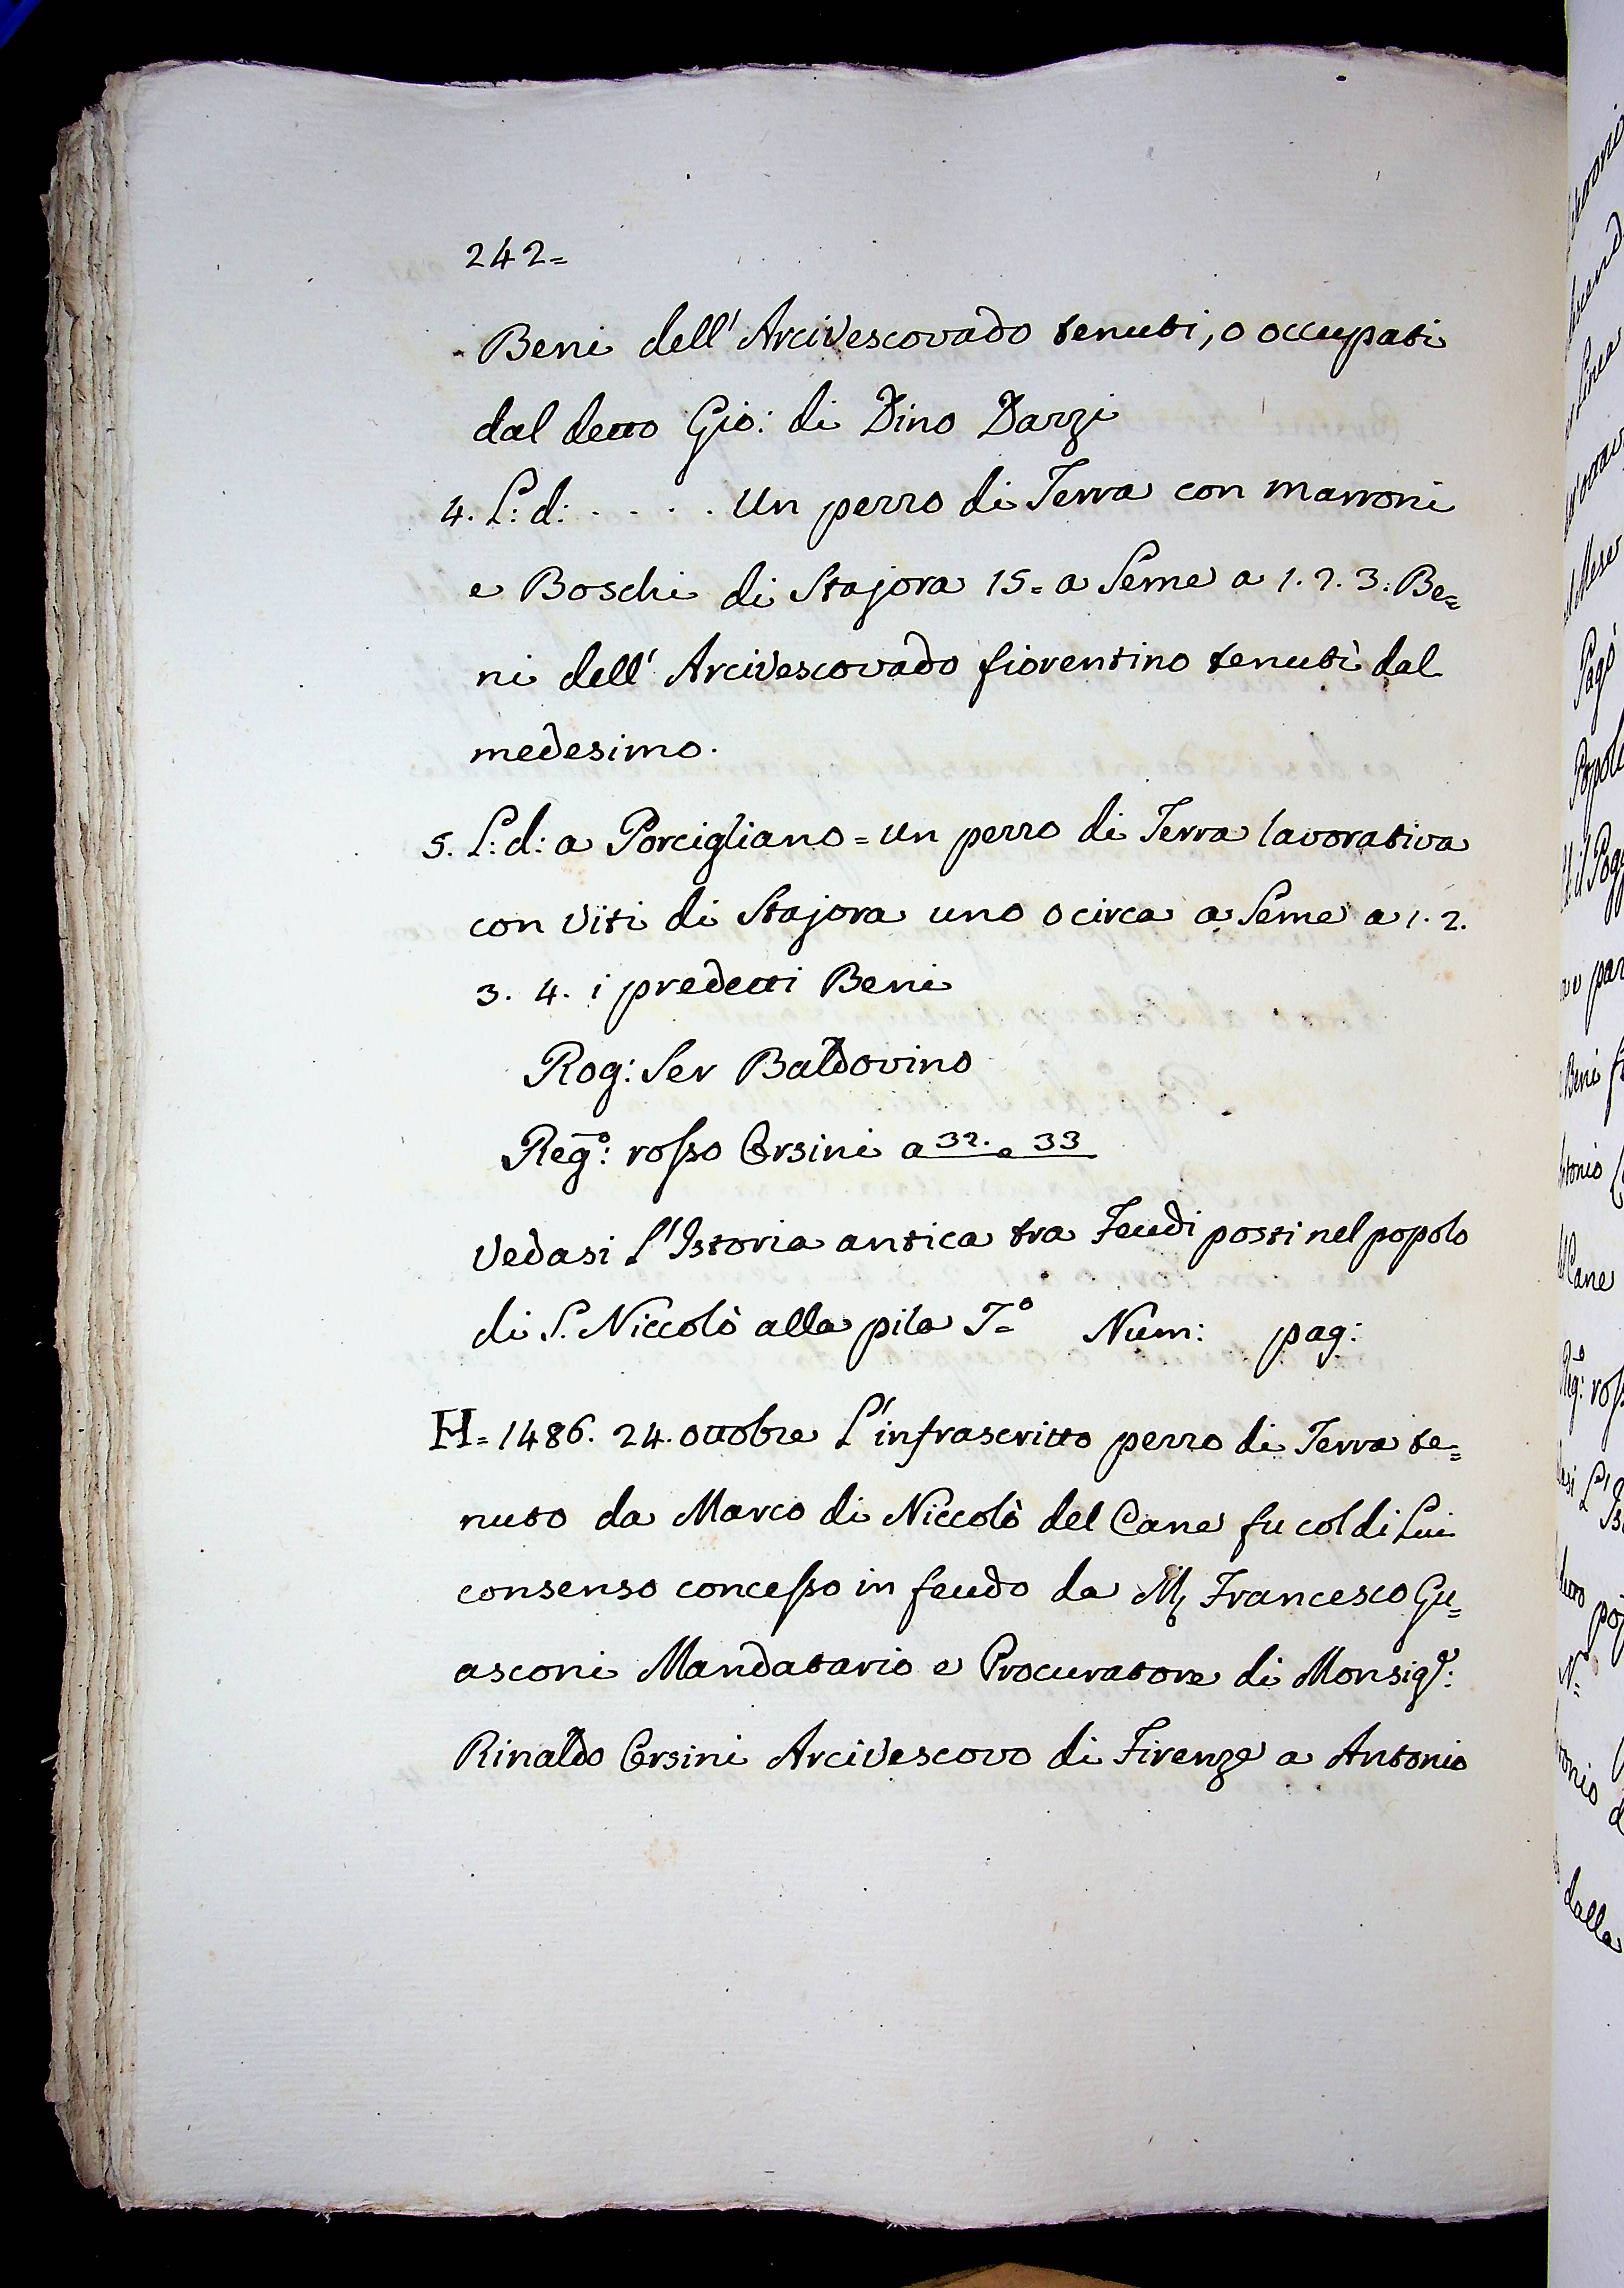 242=
Beni dell' Arcivescovado tenuti, o occupati
dal detto Gio: di Dino Darzi
4. L: d: . . . . Un pezzo di Terra con marroni
e Boschi di Stajora 15= a Seme a 1. 2. 3: Be=
ni dell' Arcivescovado fiorentino tenuti dal
medesimo.
5. L: d: a Porcigliano = un pezzo di Terra lavorativa
con viti di Stajora uno o circa a Seme a 1. 2.
3. 4. i predetti Beni
Rog: Ser Baldovino
Reg:º rosso Orsini a 32. e 33
Vedasi l'Istoria antica tra Feudi posti nel popolo
di S. Niccolò alla pila T.º Num: pag:
H= 1486. 24. ottobre L'infrascritto pezzo di Terra te=
nuto da Marco di Niccolò del Cane fu col di Lui
consenso concesso in feudo da M. Francesco Gu=
asconi Mandatario e Procuratore di Monsigr:
Rinaldo Orsini Arcivescovo di Firenze a Antonio